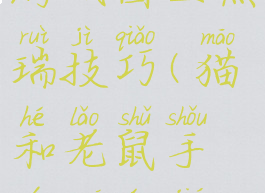 ruì jì qiǎo māo
瑞技巧(猫
hé lǎo shǔ shǒu
和老鼠手